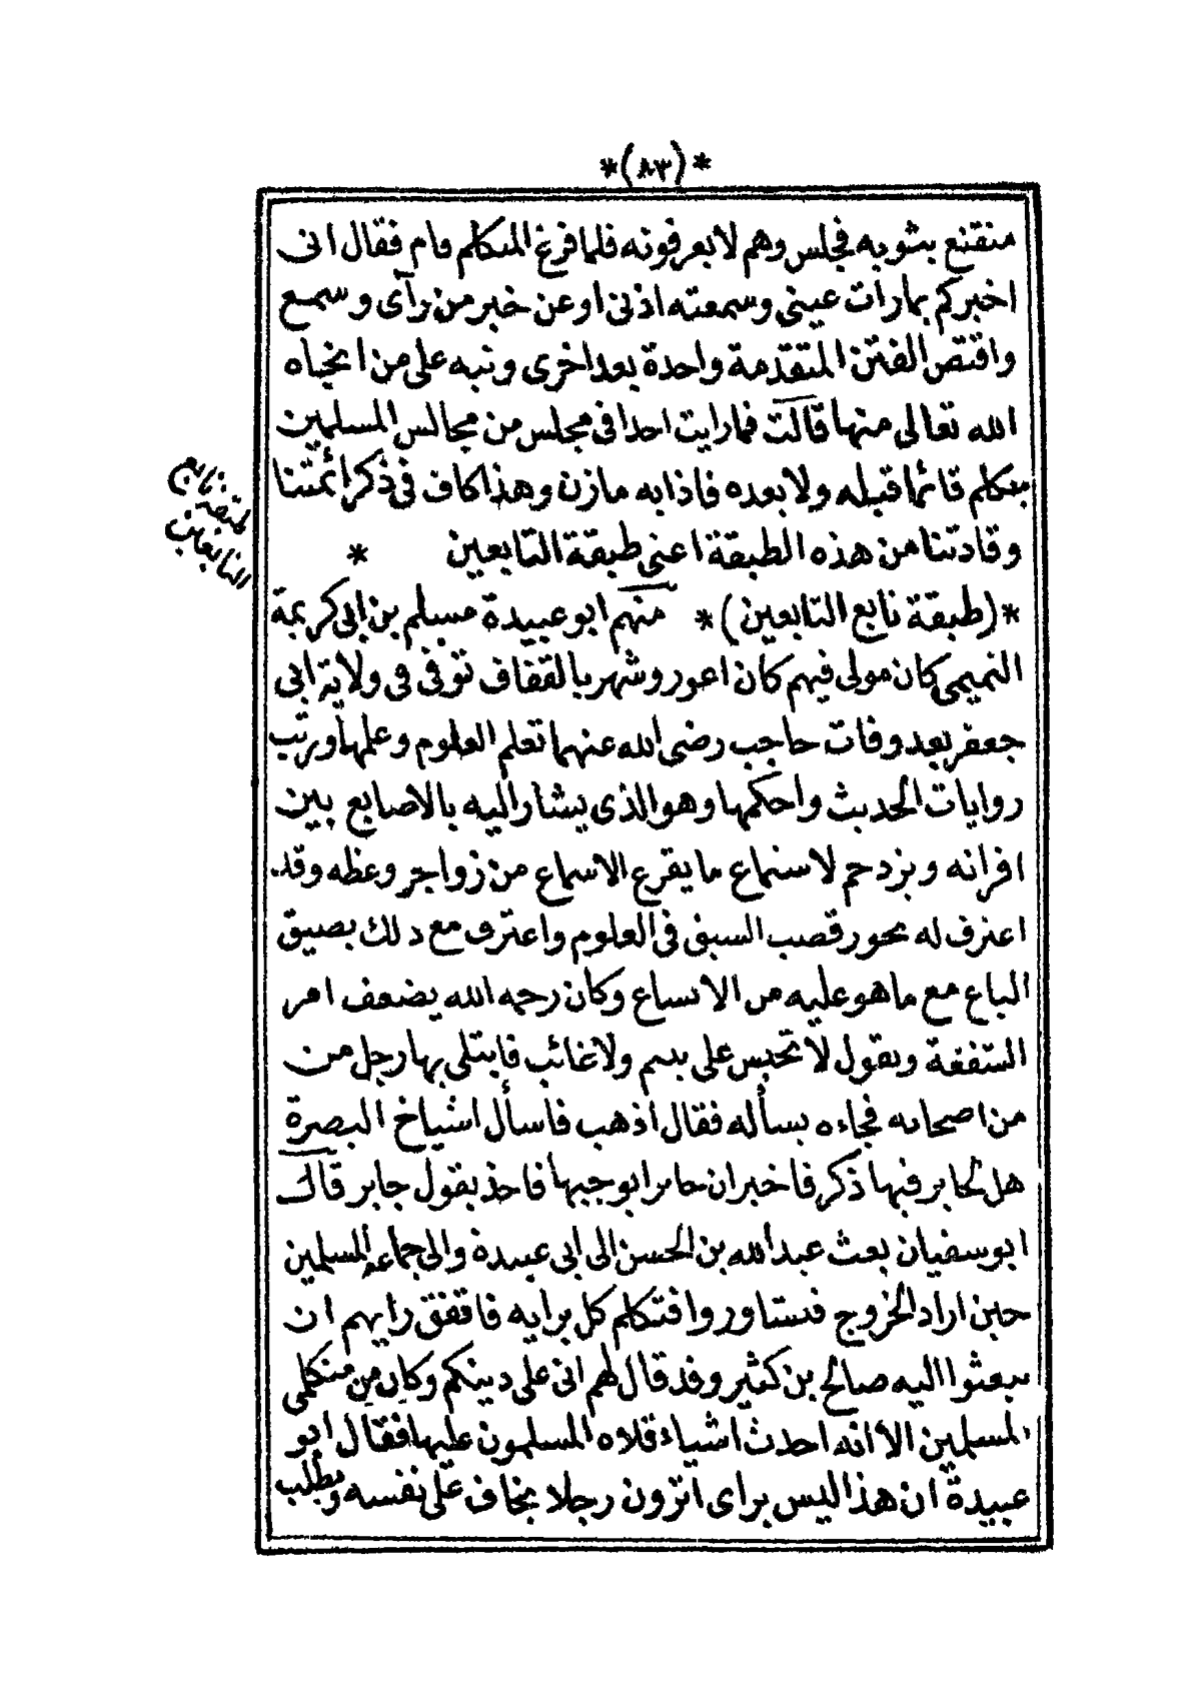 *(٨٣)*
متقنع بثوبه فجلس وهم لا يعرفونه فلما فرغ المتكلم قام فقال انى
اخبركم بما رأت عينى وسمعته اذنى او عن خبر من رآى وسمع
واقتص الفتن المتقدمة واحدة بعد اخرى ونبه على من انجاه
الله تعالى منها قالت فما رايت احدا فى مجلس من مجالس المسلمين
يتكلم قائما قبله ولا بعده فاذا به مازن وهذا كاف فى ذكر ائمتنا
وقادتنا من هذه الطبقة اعنى طبقة التابعين *
*(طبقة تابع التابعين)* منهم ابو عبيدة مسلم بن ابى كريمة
التميمى كان مولى فيهم كان اعور وشهر بالقفاف توفى فى ولاية ابى
جعفر بعد وفات حاجب رضى الله عنهما تعلم العلوم وعلمها ورتب
روايات الحديث واحكمها وهو الذى يشار اليه بالاصابع بين
اقرانه ويزدحم لاستماع ما يقرع الاسماع من زواجر وعظه وقد
اعترف له بحوز قصب السبق فى العلوم واعترف مع ذلك بضيق
الباع مع ما هو عليه من الاتساع وكان رحمه الله يضعف امر
الستفعة ويقول لا تحبس على يتيم ولا غائب فابتلى بها رجل من
من اصحابه فجاءه يسأله فقال اذهب فاسأل اشياخ البصرة
هل لجابر فيها ذكر فاخبر ان جابرا يوجبها فاخذ بقول جابر قال
ابو سفيان بعث عبد الله بن الحسن الى ابى عبيدة والى جماعة المسلمين
حين اراد الخروج فتشاوروا فتكلم كل برايه فاتفق رايهم ان
يبعثوا اليه صالح بن كثير وقد قال لهم انى على دينكم وكان من متكلمى
المسلمين الا انه احدث اشياء قلاه المسلمون عليها فقال ابو
عبيدة ان هذا ليس براى اترون رجلا يخاف على نفسه ويطلب
طبقة تابع
التابعين